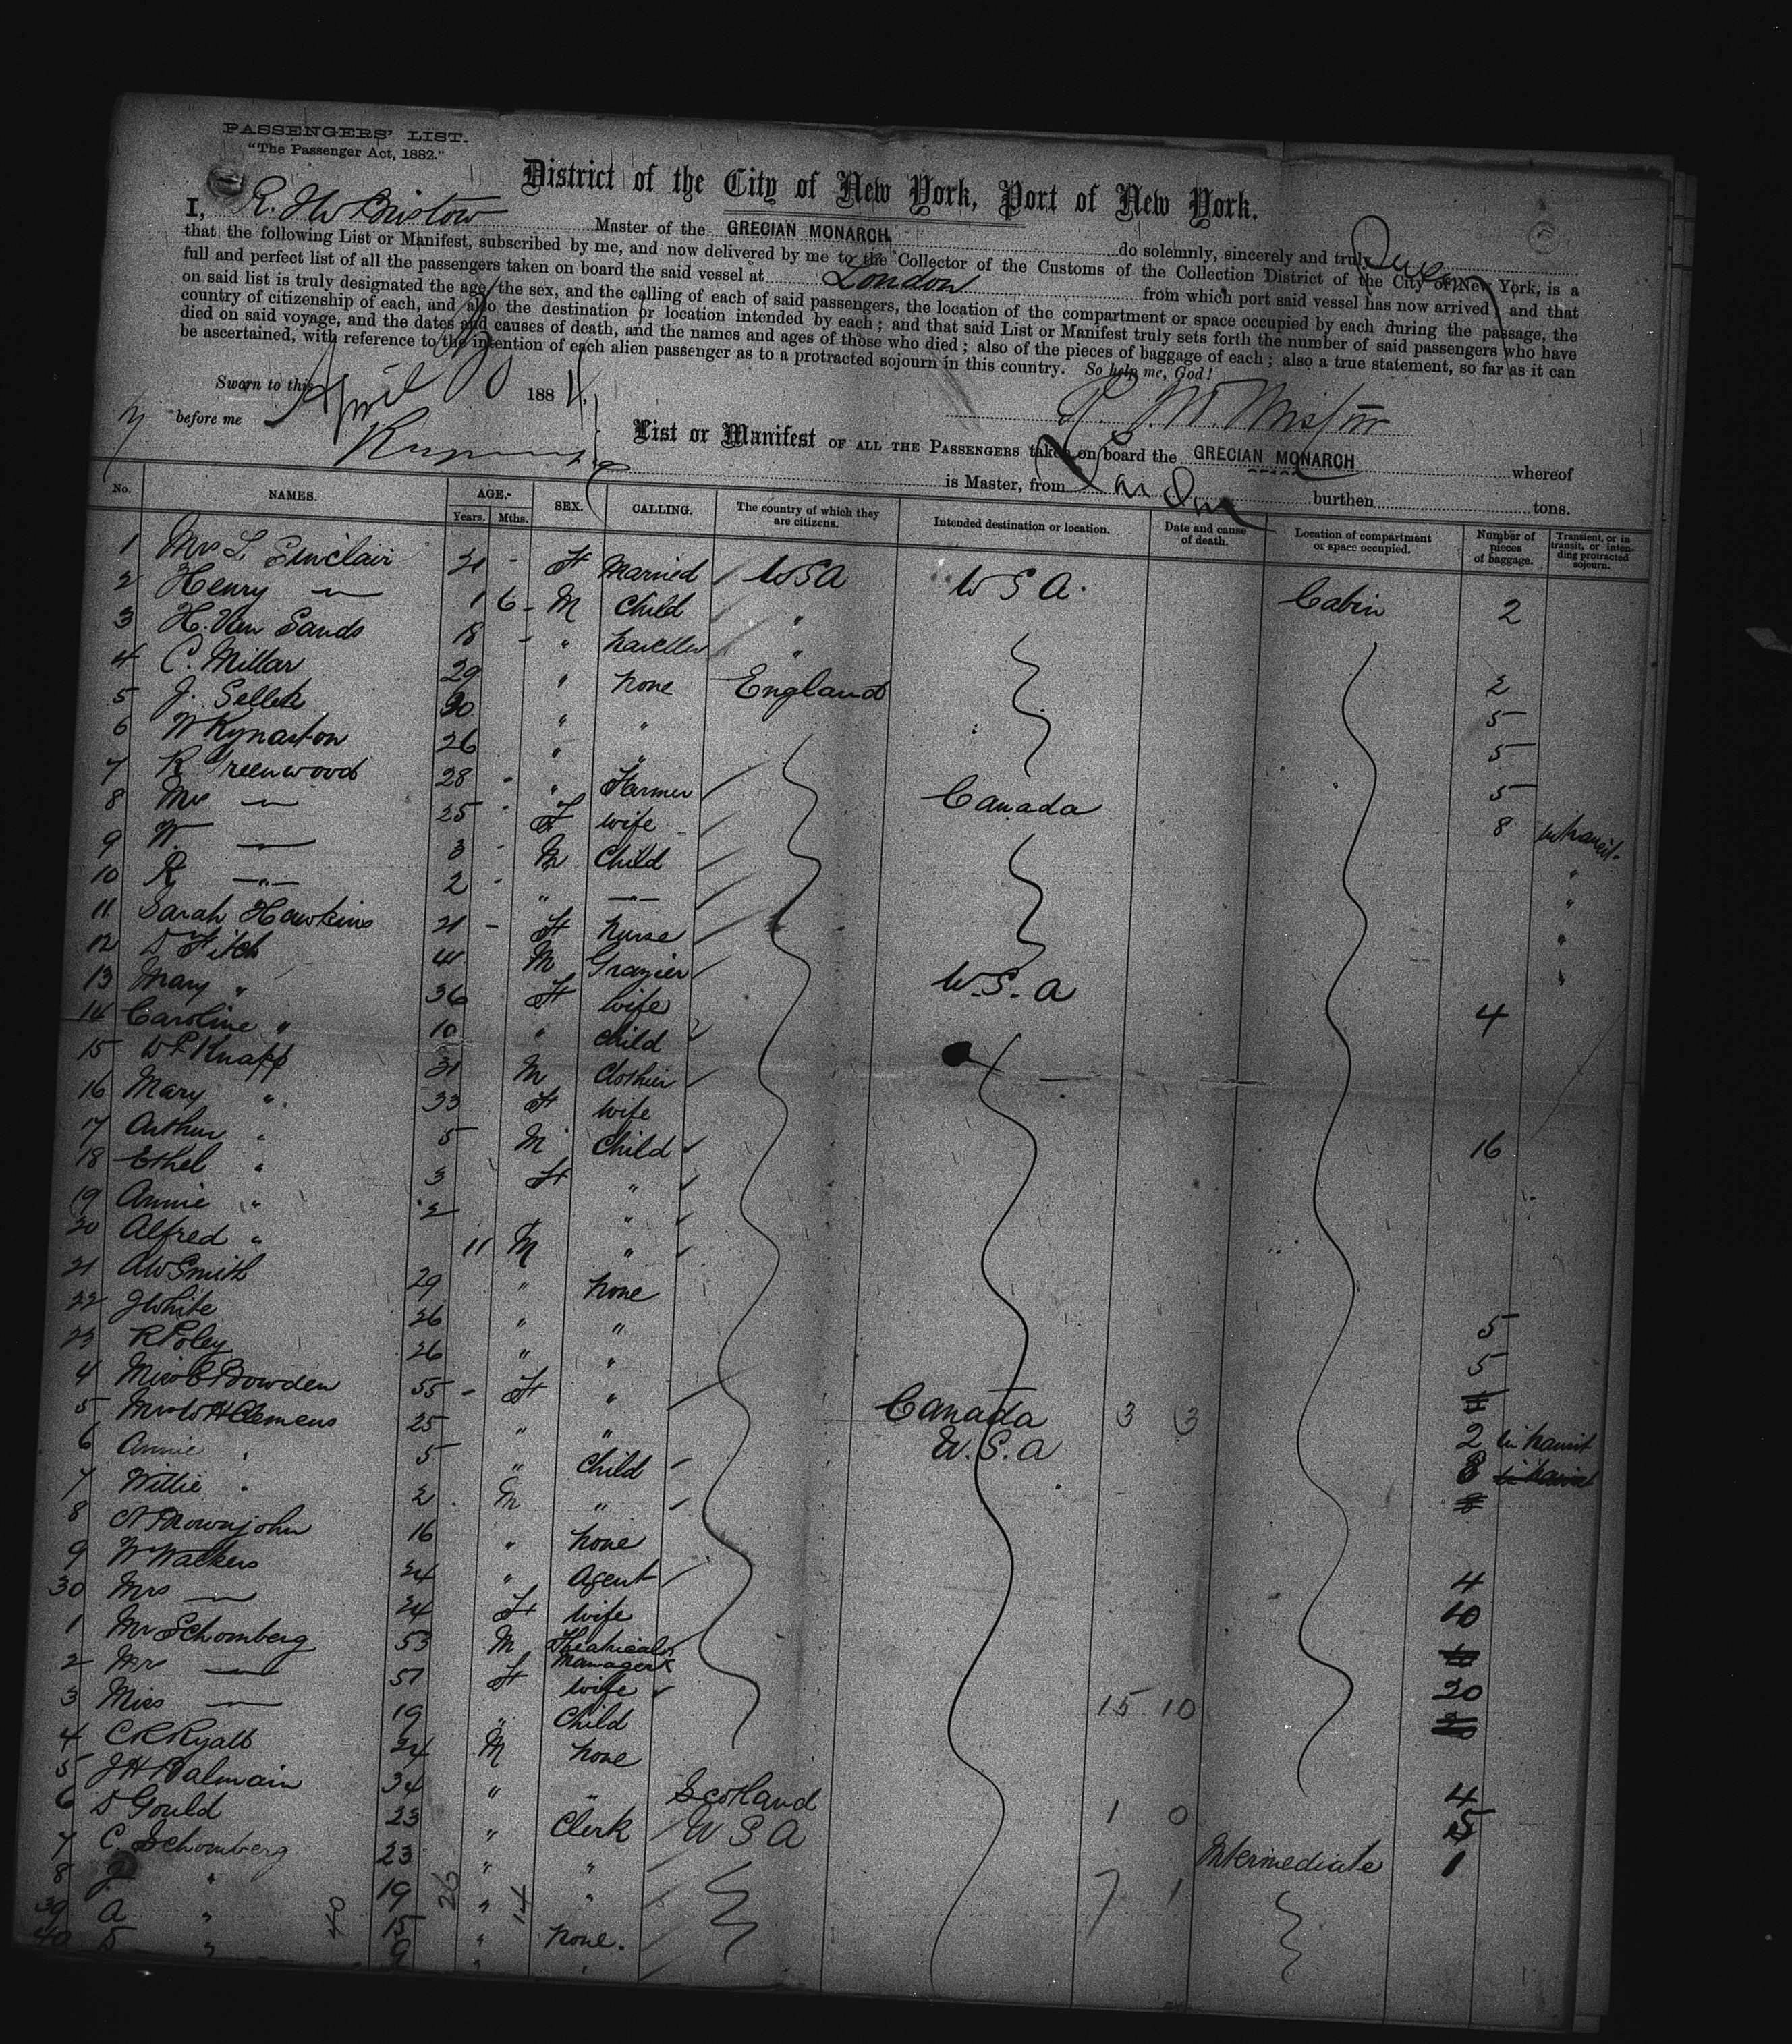 PASSENGERS' LIST.
"The Passenger Act, 1882."
District of the City of New York, Port of New York.
I, R. H W Bristow Master of the GRECIAN MONARCH do solemnly, sincerely and truly Swear
that the following List or Manifest, subscribed by me, and now delivered by me to the Collector of the Customs of the Collection District of the City of New York, is a
full and perfect list of all the passengers taken on board the said vessel at London from which port said vessel has now arrived; and that
on said list is truly designated the age, the sex, and the calling of each of said passengers, the location of the compartment or space occupied by each during the passage, the
country of citizenship of each, and also the destination or location intended by each; and that said List or Manifest truly sets forth the number of said passengers who have
died on said voyage, and the dates and causes of death, and the names and ages of those who died; also of the pieces of baggage of each; also a true statement, so far as it can
be ascertained, with reference to the intention of each alien passenger as to a protracted sojourn in this country. So help me, God!
Sworn to this April 1884
before me
List or Manifest OF ALL THE PASSENGERS taken on board the GRECIAN MONARCH whereof
is Master, from London burthen tons.
No. NAMES. AGE.- Years. Mths. SEX. CALLING. The country of which they are citizens. Intended destination or location. Date and cause of death. Location of compartment or space occupied. Number of pieces of baggage. Transient, or in transit, or intending protracted sojourn.
1 Mrs L. Sinclair 21 - F Married USA USA. Cabin 2
2 Henry — 1 6 - M Child "
3 H. Van Sands 18 - " traveller " 2
4 C. Millar 29 " none England 5
5 J. Selleh 30 " " 5
6 W Kynaston 26 " " 5
7 R Greenwood 28 - " Farmer Canada 8 in transit
8 Mrs — 25 - F wife "
9 W. — 3 - M Child "
10 R —"— 2 - " —"— "
11 Sarah Hawkins 21 - F nurse "
12 D Fitch 41 M Grazier U.S.A 4
13 Mary " 36 F wife
14 Caroline " 10 " child
15 W P Knapp 31 M Clothier 16
16 Mary " 33 F wife
17 Arthur " 5 M Child
18 Ethel " 3 F "
19 Annie " 2 " "
20 Alfred " 11 M "
21 AW Smith 29 " none 5
22 J White 26 " " 5
23 R Poley 26 " "
4 Miss C Bowden 55 - F " Canada 3 3 2 in transit
5 Mrs W H Clemens 25 " " U.S.A 8 in transit
6 Annie " 5 " Child
7 Willie " 2 M "
8 N Brownjohn 16 " none 4
9 W Walkers 24 " Agent 10
30 Mrs — 24 F wife
1 Mr Schomberg 53 M Theatrical Manager 20
2 Mrs — 51 F wife
3 Miss — 19 " Child 15 10
4 C R Ryall 24 M none 4
5 J H Balmain 34 " " Scotland 5
6 D Gould 23 " Clerk USA 1 0 Intermediate 1
7 C. Schomberg 23 " "
8 J " 19 " " 7 1
39 A " 15 " none.
40 S " 9 " "
40 26 14